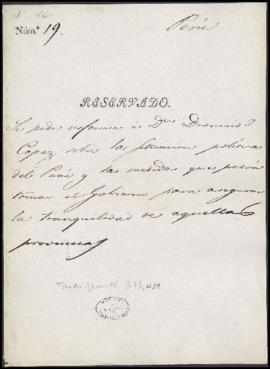 Perú
Núm.º 19.
RESERVADO.
Se pide informe á Dⁿ Dionicio
Capaz sobre la situacion política
del Perú y las medidas que podrá
tomar el Gobierno para asegurar
la tranquilidad de aquellas
provincias